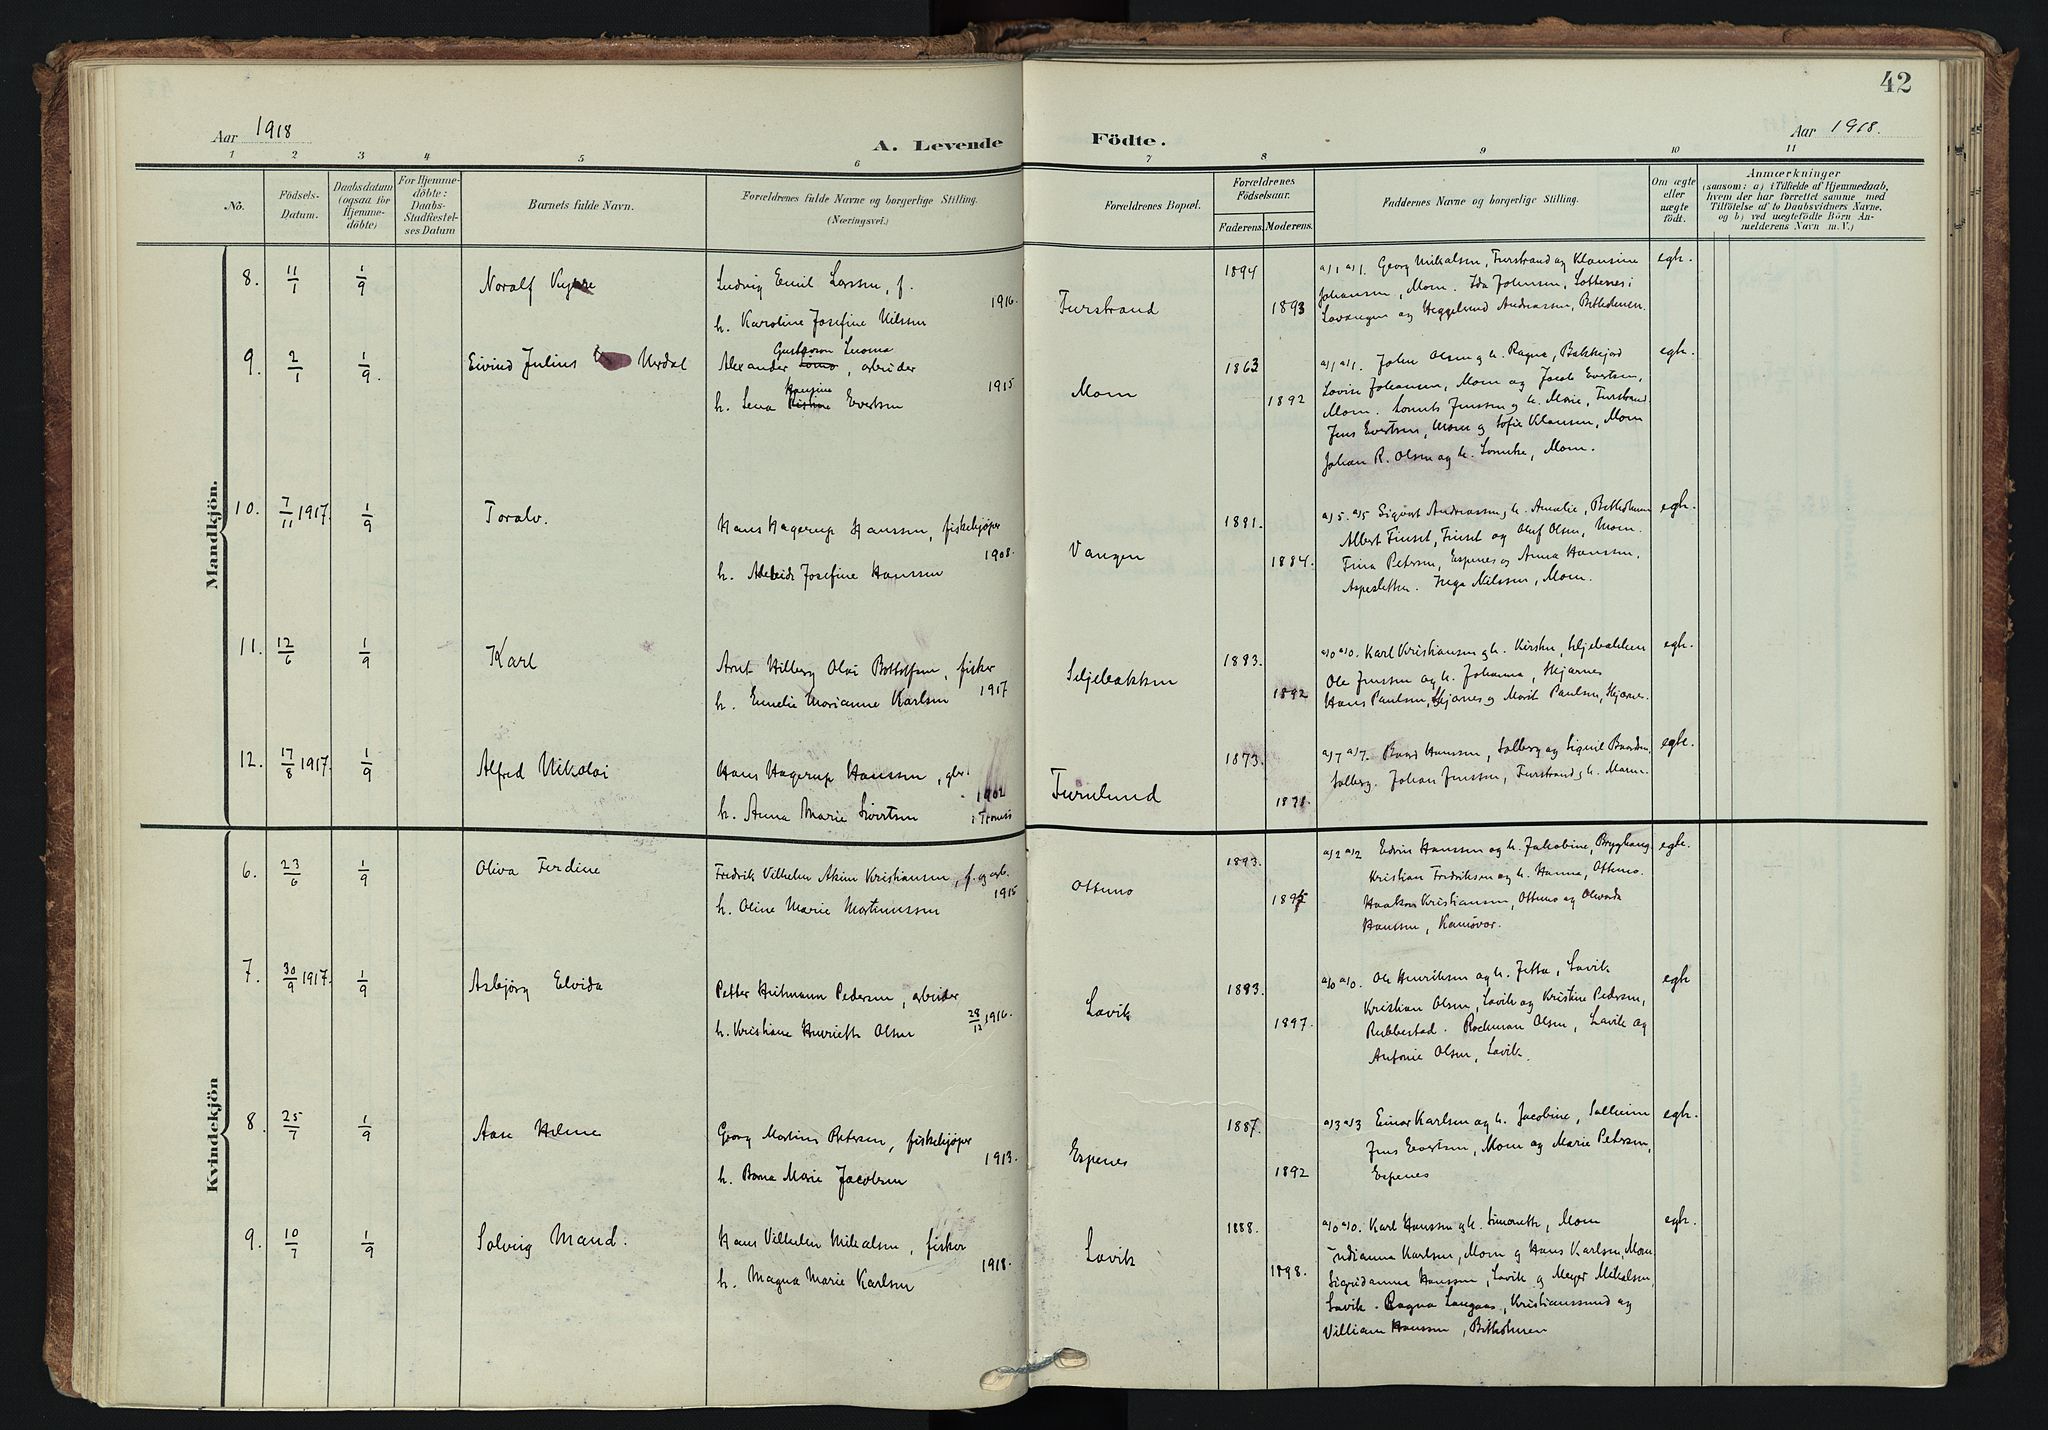 42
Aar 1918
A. Levende
Födte.
Aar 1918.
1 2 3 4 5 6 7 8 9 10 11
No.
Födsels-
Datum.
Daabsdatum
(ogsaa for
Hjemme-
döbte)
For Hjemme-
döbte:
Daabs-
Stadfæstel-
ses Datum
Barnets fulde Navn.
Forældrenes fulde Navne og borgerlige Stilling.
(Næringsvei.)
Forældrenes Bopæl.
Forældrenes
Födselsaar.
Faderens. Moderens.
Faddernes Navne og borgerlige Stilling.
Om ægte
eller
uægte
födt.
Anmærkninger
(saasom: a) i Tilfælde af Hjemmedaab,
hvem der har forrettet samme med
Tilföielse af to Daabsvidners Navne,
og b) ved uægtefödte Börn An-
melderens Navn m. V.)
Mandkjön.
8. 11/1 1/9 Noralf
Ludvig Emil Larssen, f.
1916.
h. Karoline Josefine Nilssen
Furstrand
1894
1893
a/1 a/1. Georg Mikalsen, Furstrand og Klausine
Johansen, Mom. Ida Johnsen, Lottenes i
Lavangen og Heggelund Andreassen, Botnholmen.
egte.
9. 2/1 1/9. Eivind Julius Urdal
Gustavson Luoma
Alexander Lomo, arbeider
1915
Hansine
h. Lena Kristine Evertsen
Mom
1863
1892
a/1 a/1. John Olsen og h. Ragna, Bakkejord
Lovise Johansen, Mom og Jacob Evertsen,
Mom. Lorents Jenssen og h. Marie, Furstrand
Jens Evertsen, Mom og Sofie Klausen, Mom
Johan R. Olsen og h. Mom.
egte.
10. 7/11 1917. 1/9 Toralv.
Hans Hagerup Hanssen, fiskekjøper
1908.
h. Josefine Hanssen
Vangen
1881.
1884.
a/5. a/5 Sigurd Andreassen og h. Amalie,
Albert Finset, Finset og Oluf Olsen, Mom.
Trina Petersen, Espenes og Anna Hanssen,
Aspesletten. Inga Nilssen, Mom.
egte.
11. 12/6 1/9 Karl
Arnt Hilberg Olai Bottolfsen, fisker
1917
h. Emelie Marianne Karlsen
Seljebakken
1883.
1892
a/0 a/0. Karl Kristiansen og h. Kirsten, Seljebakken
Ole Jenssen og h. Johanna, Hjarnes
Hans Paulsen, Hjarnes og Marit Paulsen, Hjarnes.
egte.
12. 17/8 1917. 1/9 Alfred Nikolai
Hans Hagerup Hanssen, gbr.
1902
h. Anna Marie Sivertsen i Tromsø
Furulund
1873.
1871.
a/7 a/7. Baard Hanssen, Solberg og Signil Baardsen
Solberg. Johan Jenssen, Furstrand og h. Maren.
egte.
Kvindekjön
6. 23/6 1/9 Oliva Ferdine
Fredrik Vilhelm Akim Kristiansen, f. og arb.
1915
h. Oline Marie Martinussen
Ottemo
1893.
1895
a/2 a/2 Edvin Hanssen og h. Jakobine, Brygghaug
Kristian Fredriksen og h. Hanna, Ottemo.
Haakon Kristiansen, Ottemo og
Hanssen, Kamøvær.
egte.
7. 30/9 1917. 1/9 Asbjørg Elvida
Petter Heitmann Pedersen, arbeider
28/12 1916.
h. Kristiane Henriette Olsen
Lavik
1893.
1897.
a/0 a/0. Ole Henriksen og h. Jetta, Lavik
Kristian Olsen, Lavik og Kristine Pedersen,
Rubbestad. Rockman Olsen, Lavik og
Antonie Olsen, Lavik.
egte
8. 25/7 1/9 Aase Helene
Georg Martin Petersen, fiskekjøper
1913.
h. Barna Marie Jacobsen
Espenes
1887.
1892
a/3 a/3 Einar Karlsen og h. Jacobine, Solheim
Jens Evertsen, Mom og Marie Petersen,
Espenes
egte.
9. 10/7 1/9 Solveig Maud.
Hans Vilhelm Mikalsen, fisker
1918.
h. Magna Marie Karlsen
Lavik
1888.
1898.
a/0 a/0. Karl Hanssen og h. Simonette, Mom
Indianna Karlsen, Mom og Hans Karlsen, Mom
Sigridanna Hanssen, Lavik og Meyer Mikalsen,
Lavik. Ragna Langaas, Kristianssund og
Villiam Hanssen, Botnholmen
egte.